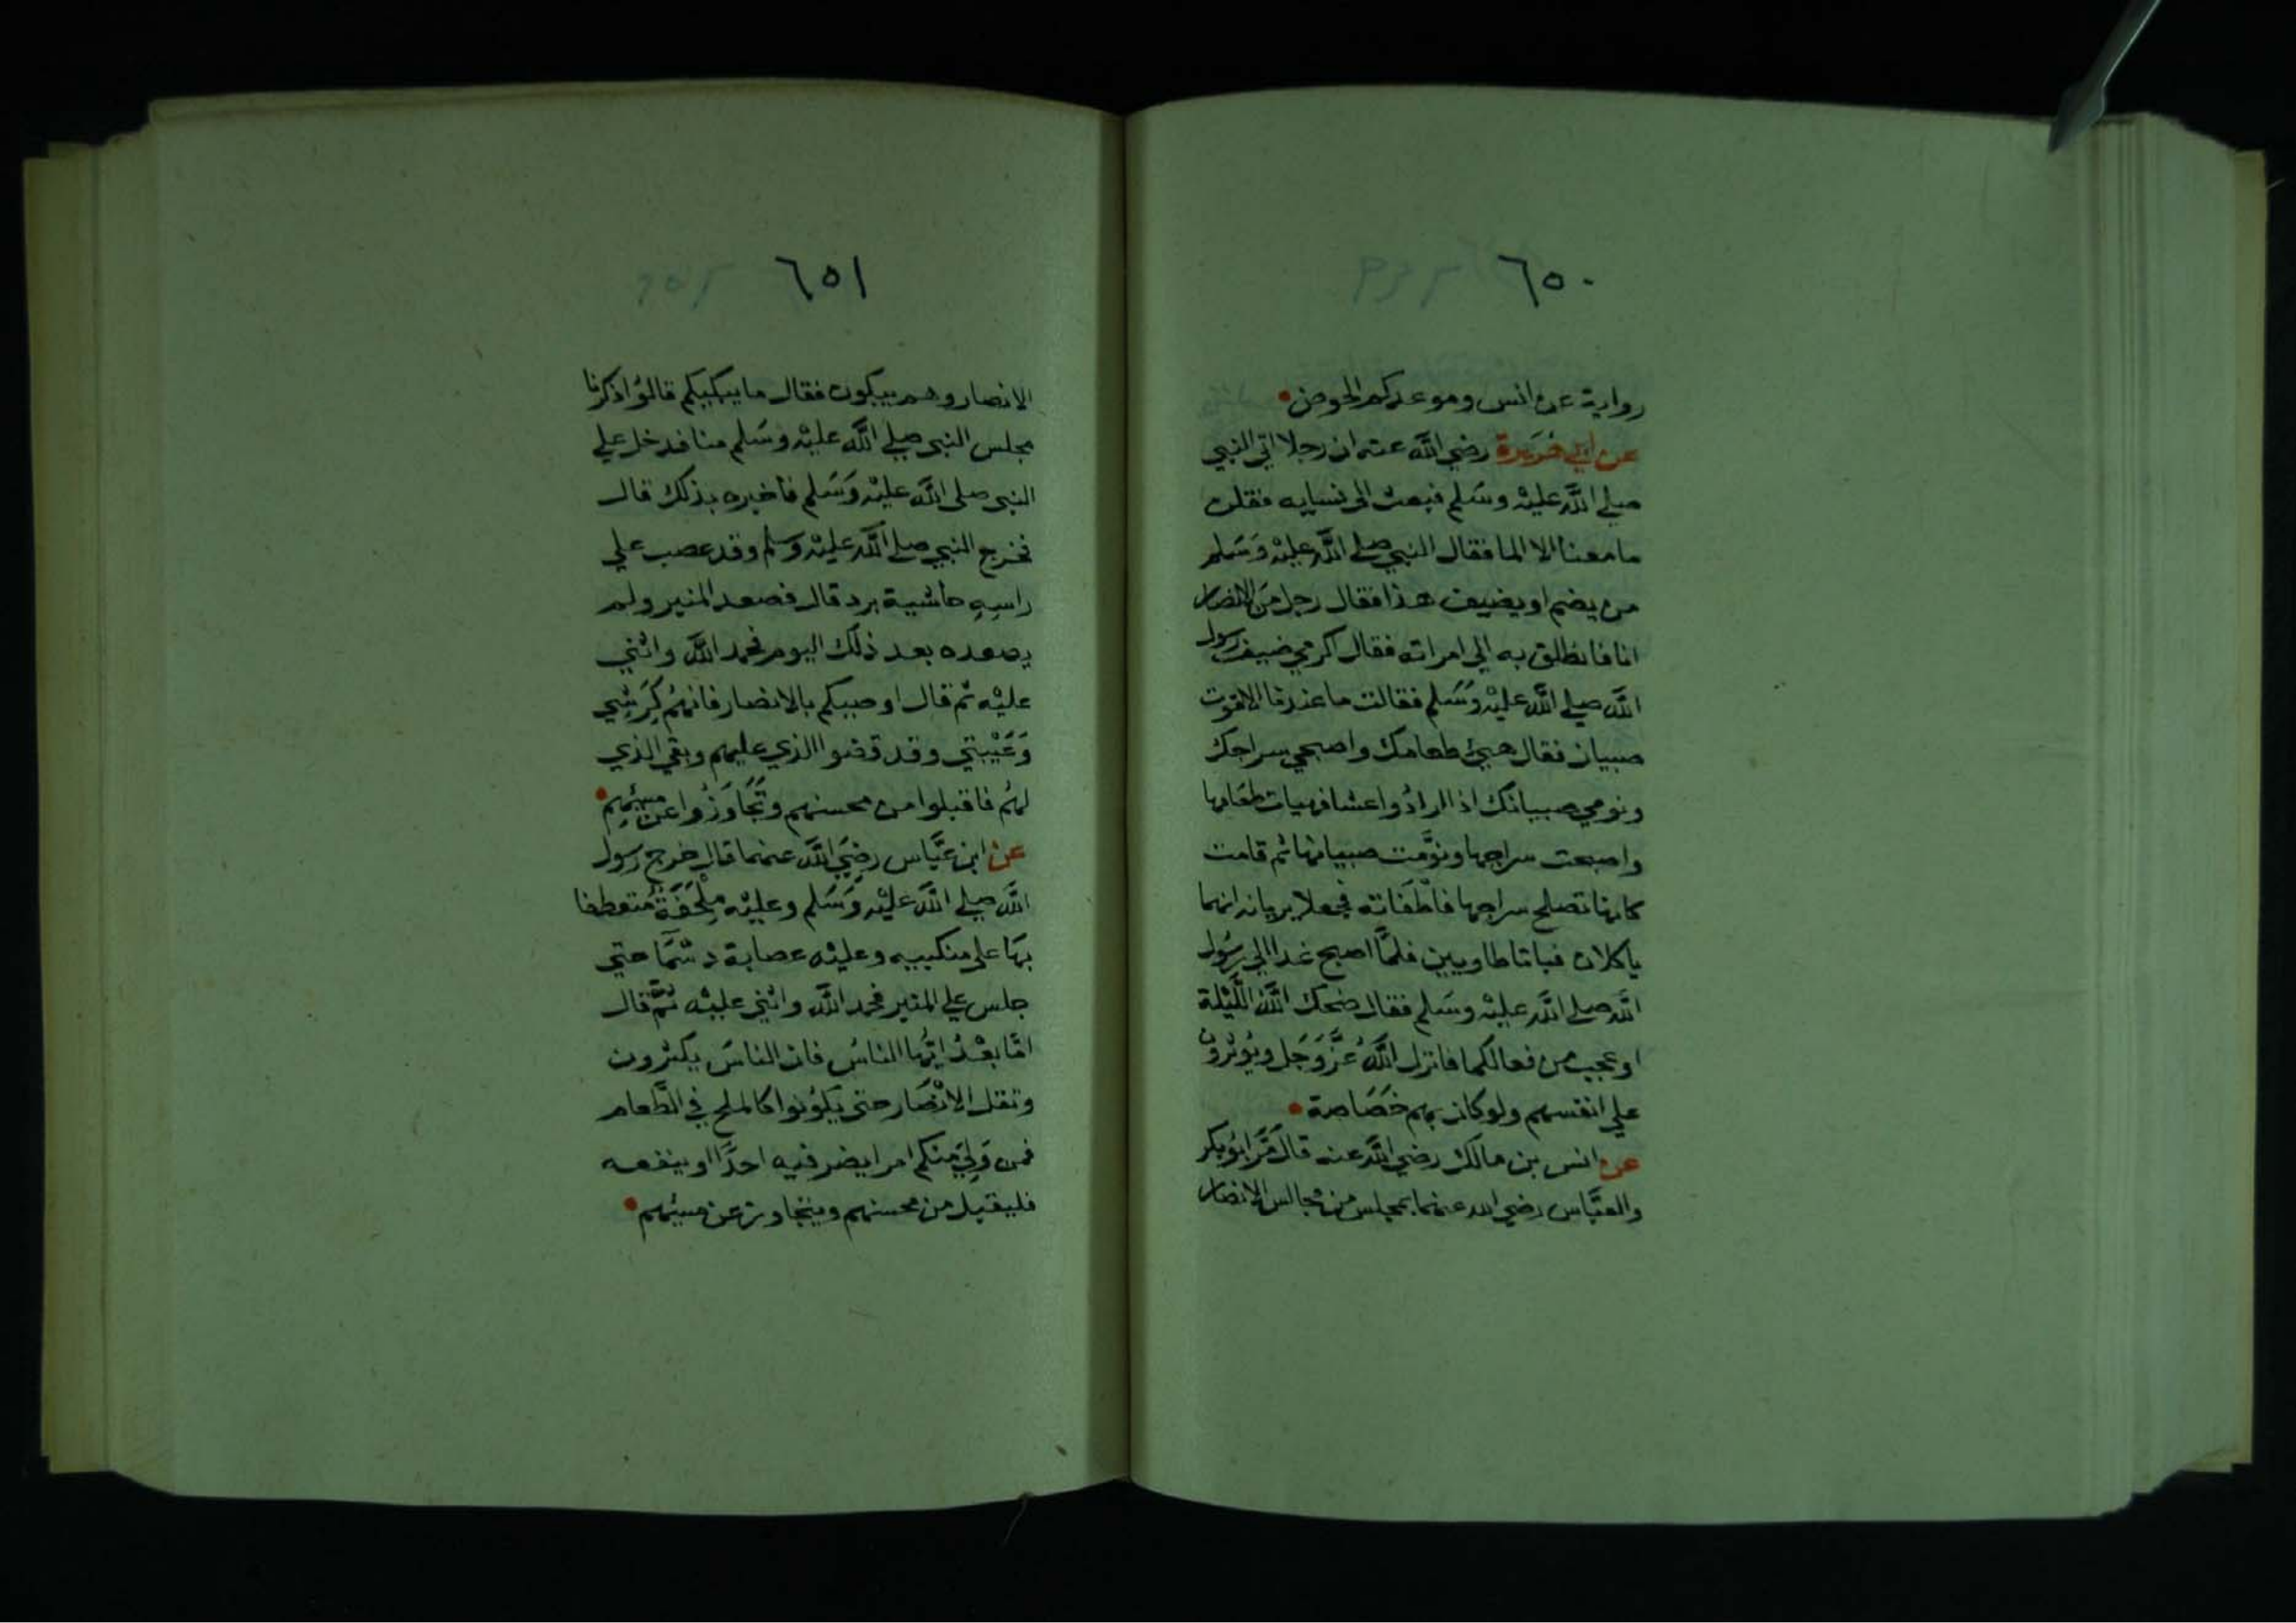 ٦٥٠
رواية عن انس وموعدكم الحوض
عن ابي هريرة رضي الله عنه ان رجلا اتي النبي
صلي الله عليه وسلم فبعث الي نسايه فقلن
ما معنا الا الما فقال النبي صلي الله عليه وَسَلم
من يضم او يضيف هذا فقال رجل من الانصار
انا فانطلق به الي امراته فقال اكرمي ضيف رسول
الله صلي الله عليه وَسَلم فقالت ما عندنا الا قوت
صبيان فقال هيئ طعامك واصبحي سراجك
ونومي صبيانك اذا ارادُوا عشا فهيات طعَامها
واصبحت سراجها ونوَّمت صبيانها ثم قامت
كانها تصلح سراجها فاطفَاته فجعلا يريانه انهما
ياكلان فباتا طاويين فلمَّا اصبح غدا الي رسُول
الله صلي الله عليه وسَلم فقال ضحك اللهُ اللَّيْلة
او عجب من فعالكما فانزل اللهُ عَزَّ وَجَل ويُوثرُون
علي انفسهم ولو كان بهم خصَاصة
عن انس بن مالك رضي الله عنه قال مَرَّ ابُو بكر
والعبَّاس رضي الله عنهما بمجلس من مجالس الانصار
٦٥١
الانصار وهم يبكون فقال ما يبكيكم قالوُا ذكرنا
مجلس النبي صلي الله عليْه وسَلم منا فدخل علي
النبي صلي الله عليْه وَسَلم فاخبره بذلك قال
فخرج النبي صلي الله عليْه وسلم وقد عصب علي
راسِهِ حاشية برد قال فصعد المنبر ولم
يصعده بعد ذلك اليوم فحمد الله واثني
عليْه ثم قال اوصيكم بالانصار فانهُم كِرَشِي
وَعَيْبتي وقد قضوا الذي عليهم وبقي الذي
لهُم فاقبلوا من محسنهم وتَجَاوَزُوا عن مسِيْهم
عن ابن عبَّاس رضَي الله عنهما قال خرج رسول
الله صلي الله عليْه وَسَلم وعليْه مِلْحَفَة مُتعطفا
بهَا علي منكبيه وعليْه عصابة دسْمَآ حتي
جلس علي المنبر فحمد الله واثني عليْه ثمَّ قال
امَّا بعْدُ ايُّها الناسُ فان الناسَ يكثرون
وتقل الانْصَار حتي يَكوُنوا كالملح في الطَّعام
فمن وَلِيَ منكم امرا يضر فيه احدًا او ينفعه
فليقبل من محسنهم ويتجاوز عن مسيْهم